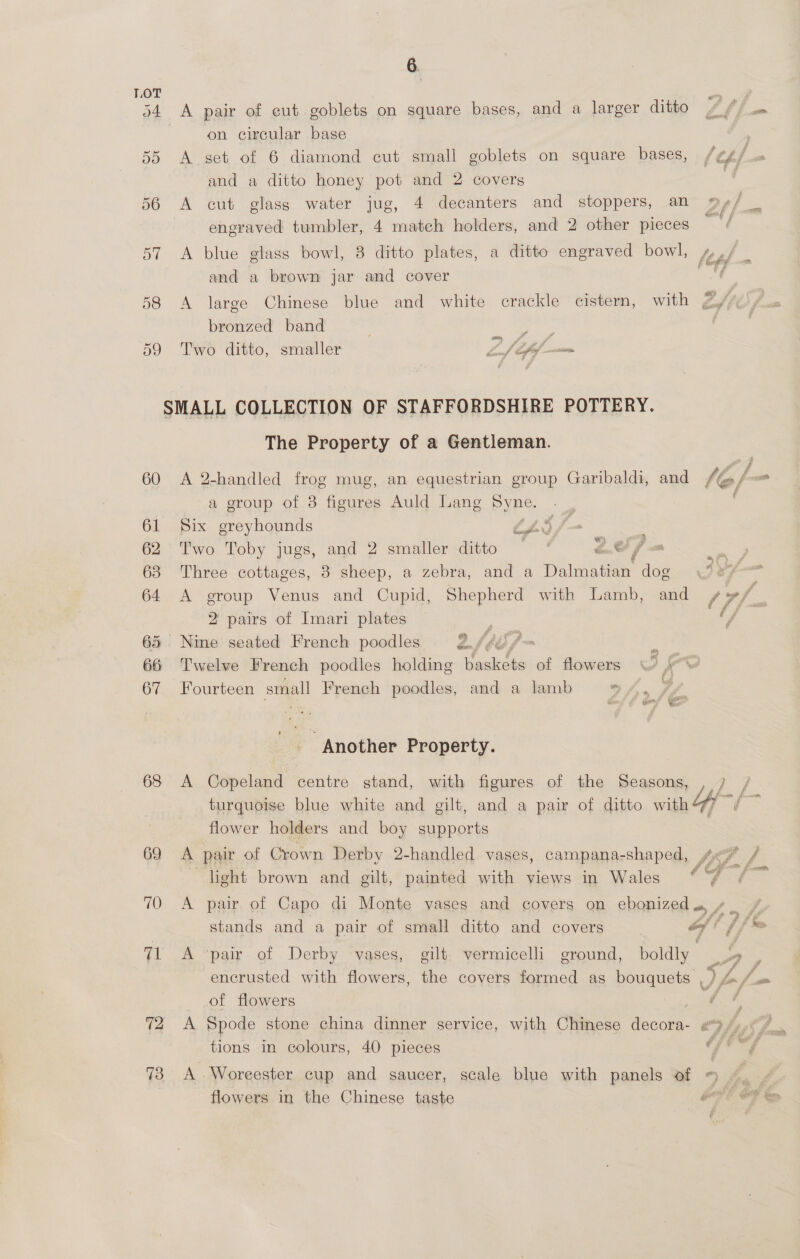 6
LOT
54 A pair of cut goblets on square bases, and a larger ditto
on circular base
55 A set of 6 diamond cut small goblets on square bases,
and a ditto honey pot and 2 covers
56 A cut glass water jug, 4 decanters and stoppers, an
engraved tumbler, 4 match holders, and 2 other pieces
57 A blue glass bowl, 3 ditto plates, a ditto engraved bowl,
and a brown jar and cover
58 A large Chinese blue and white crackle cistern, with
bronzed band
59 Two ditto, smaller
SMALL COLLECTION OF STAFFORDSHIRE POTTERY.
The Property of a Gentleman.
60 A 2-handled frog mug, an equestrian group Garibaldi, and
a group of 3 figures Auld Lang Syne.
61 Six greyhounds
62 Two Toby jugs, and 2 smaller ditto
63 Three cottages, 3 sheep, a zebra, and a Dalmatian dog
64 A group Venus and Cupid, Shepherd with Lamb, and
2 pairs of Imari plates
65 Nine seated French poodles
66 Twelve French poodles holding baskets of flowers
67 Fourteen small French poodles, and a lamb
Another Property.
68 A Copeland centre stand, with figures of the Seasons,
turquoise blue white and gilt, and a pair of ditto with
flower holders and boy supports
69 A pair of Crown Derby 2-handled vases, campana-shaped,
light brown and gilt, painted with views in Wales
70 A pair of Capo di Monte vases and covers on ebonized
stands and a pair of small ditto and covers
71 A pair of Derby vases, gilt vermicelli ground, boldly
encrusted with flowers, the covers formed as bouquets
of flowers
72 A Spode stone china dinner service, with Chinese decora-
tions in colours, 40 pieces
73 A Worcester cup and saucer, scale blue with panels of
flowers in the Chinese taste